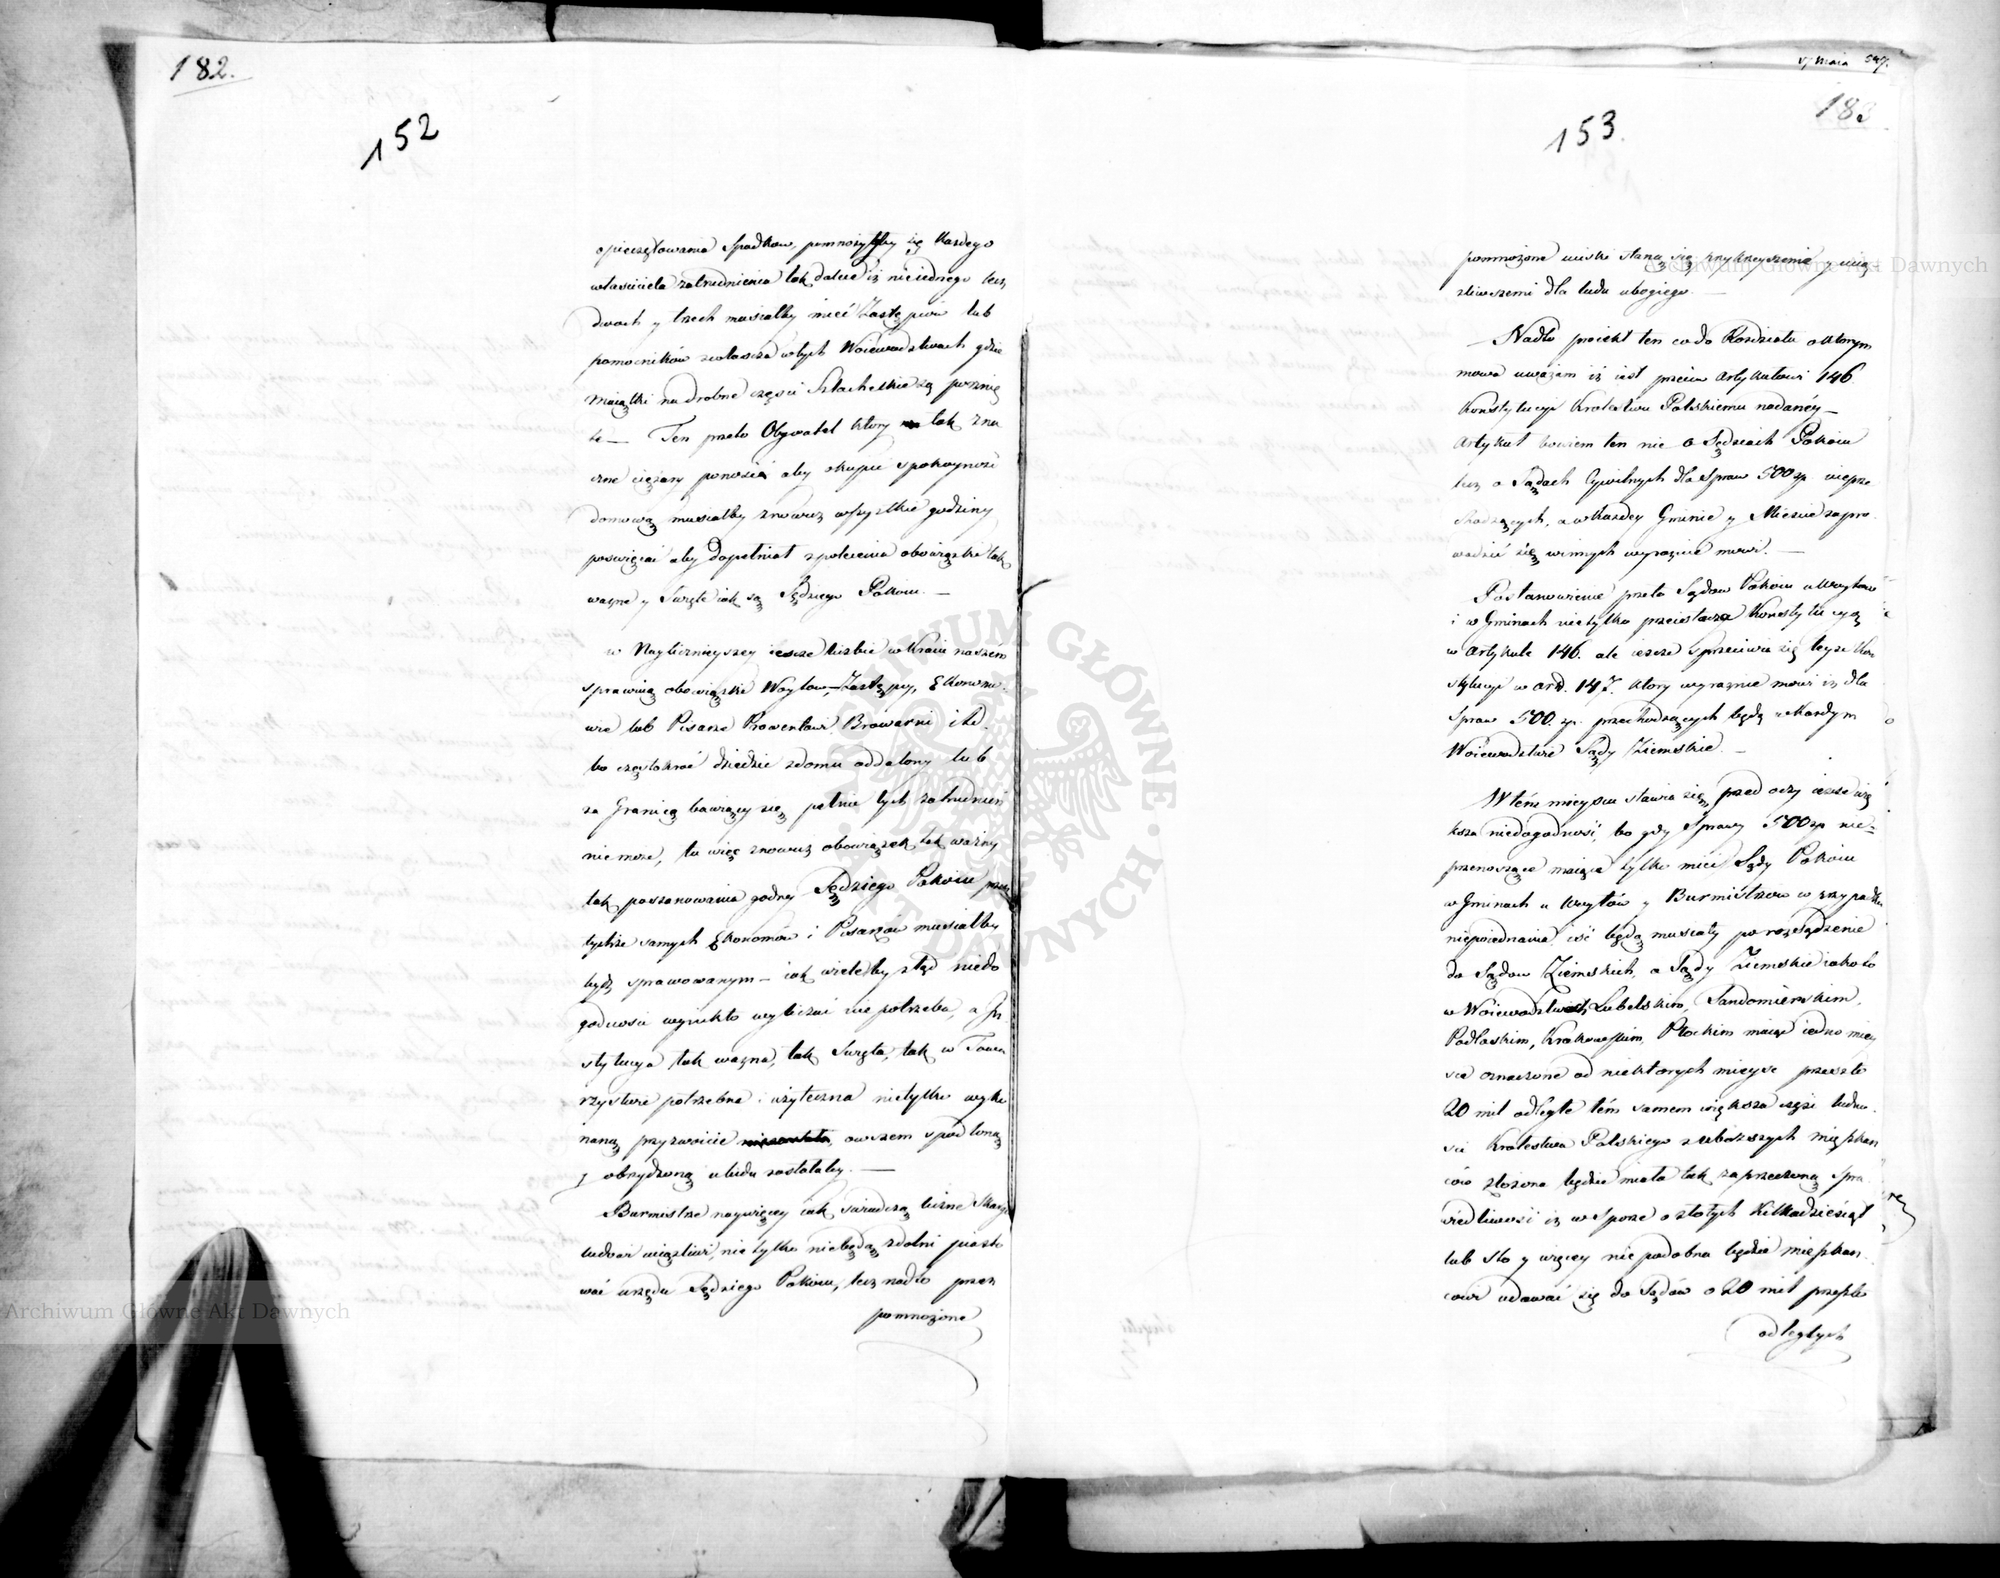 182.
152
opieczętowania Spadków, pomnożyłyby się każdego
właściciela zatrudnienia tak dalece iż nie iednego lecz
dwoch y trzech musiałby mieć Zastępców lub
pomocników zwłaszcza w tych Woiewodztwach gdzie
Maiątki na drobne części Szlacheckie są podzie
te — Ten przeto Obywatel ktory tak zna
czne ciężary ponosi aby okupić spokoyność
domową musiałby znowuż wszystkie godziny
poswięcać aby dopełniał z polecenia obowiązki tak
ważne y Swięte iak są Sędziego Pokoiu. —
w Naylicznieyszey iescze liczbie w Kraiu naszém
sprawuią obowiązki Woytow, Zastępcy, Ekonomo
wie lub Pisarze Prowentowi, Browarni i t.d.
bo częstokroć dziedzic z domu oddalony lub
za Granicą bawiący się, pełnić tych zatrudnień
nie może, tu więc znowuż obowiązek tak ważny
tak poszanowania godny Sędziego Pokoiu przez
tychże samych Ekonomów i Pisarzów musiałby
bydź sprawowanym — iak wiele by ztąd niedo
godnosci wynikło wyliczać nie potrzeba, a In
stytucya tak ważna, tak Swięta, tak w Towa
rzystwie potrzebna i użyteczna nie tylko wyko
naną przyzwoicie owszem spodloną
y obrzydzoną u ludu zostałaby. —
Burmistrze naywięcey iak swiadczą liczne Skargi
ludowi uciążliwi, nie tylko nie będą zdolni piasto
wać urzędu Sędziego Pokoiu, lecz nadto przez
pomnożone
v, Maia 547.
183
153.
pomnożone uciski staną się przykrzeyszemi y ucią
żliwszemi dla ludu ubogiego. —
— Nadto proiekt ten co do Rozdziału o ktorym
mowa uważam iż iest przeciw Artykułowi 146
Konstytucyi Krolestwu Polskiemu nadanéy —
Artykuł bowiem ten nie o Sędziach Pokoiu
lecz o Sądach Cywilnych dla Spraw 500 zp nieprze
chodzących, a w każdey Gminie y Miescie zapro
wadzić się winnych wyraznie mowi. —
Postanowienie przeto Sądow Pokoiu u Woytow
i w Gminach nie tylko przeistacza Konstytucyą
w Artykule 146. ale iescze sprzeciwia się teyże Kon
stytucyi w Art. 147. ktory wyraznie mowi iż dla
Spraw 500. zp. przechodzących będą w każdym
Woiewodztwie Sądy Ziemskie. —
W tém mieyscu stawia się przed oczy iescze wię
ksza niedogodność, bo gdy Sprawy 500 zp nie-
przenoszące maiące tylko mieć Sądy Pokoiu
w Gminach u Woytów y Burmistrzow w przypadku
niepoiednania iść będą musiały po rozsądzenie
do Sądow Ziemskich, a Sądy Ziemskie iako to
w Woiewodztwach Lubelskim, Sandomierskim,
Podlaskim, Krakowskim, Płockim maiąc iedno miey
sce oznaczone od niektorych mieysc przeszło
20 mil odległe tém samem większa część ludno
sci Krolestwa Polskiego z uboższych mięszkań
ców złożona będzie miała tak zaprzeczoną Spra
wiedliwość iż w Sporze o złotych Kilkadziesiąt
lub sto y więcey niepodobna będzie mieszkań
cowi udawać się do Sądów o 20 mil przeszło
odległych